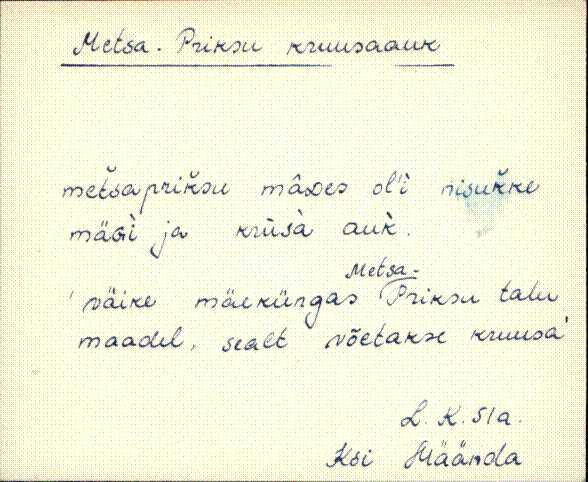 Metsa-Priksu kruusaauk
metšapriksu mâɒes ol'ì nisukke
mäɢì ja krùsà auk̀.
'väike mäekürgas Metsa-Priksu talu
maadel, sealt võetakse kruusa'
L. K. Sla.
Ksi Mäända